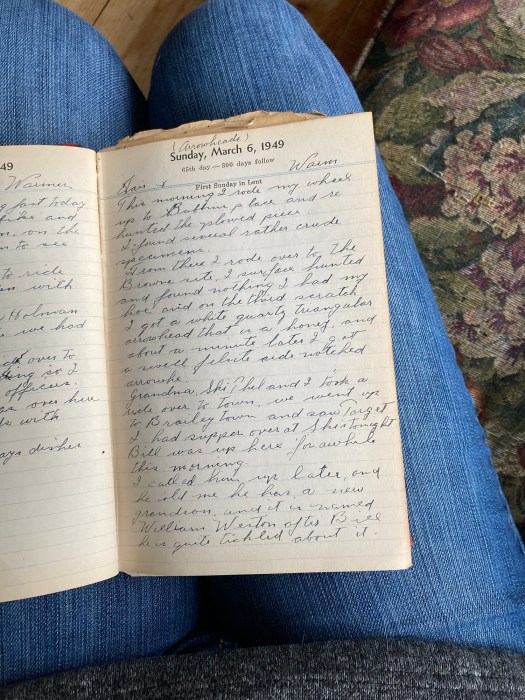 49
Warmer
last today
and
on the
to see
to ride
with
Holman
we had
over to
officers.
over here
with
days disher
(Arrowheads)
Sunday, March 6, 1949
65th day—300 days follow
Warm
First Sunday in Lent
This morning I rode my wheel
up to place and re
hunted the plowed piece.
I found several rather crude
specimens.
From there I rode over to the
Browne site, I surface hunted
and found nothing I had my
hoe and on the third scratch
I got a white quartz triangular
arrowhead that is a honey, and
about a minute later I got
a swell felsite side notched
arrowhe.
Grandma, Ski Thel and I took a
ride over to town, we went up
to Braileytown and saw Target
I had supper over at Skis tonight
Bill was up here for awhile
this morning
I called him up later, and
he old me he has a new
grandson, and it is named
William Weston after Bill
he is quite tickled about it.